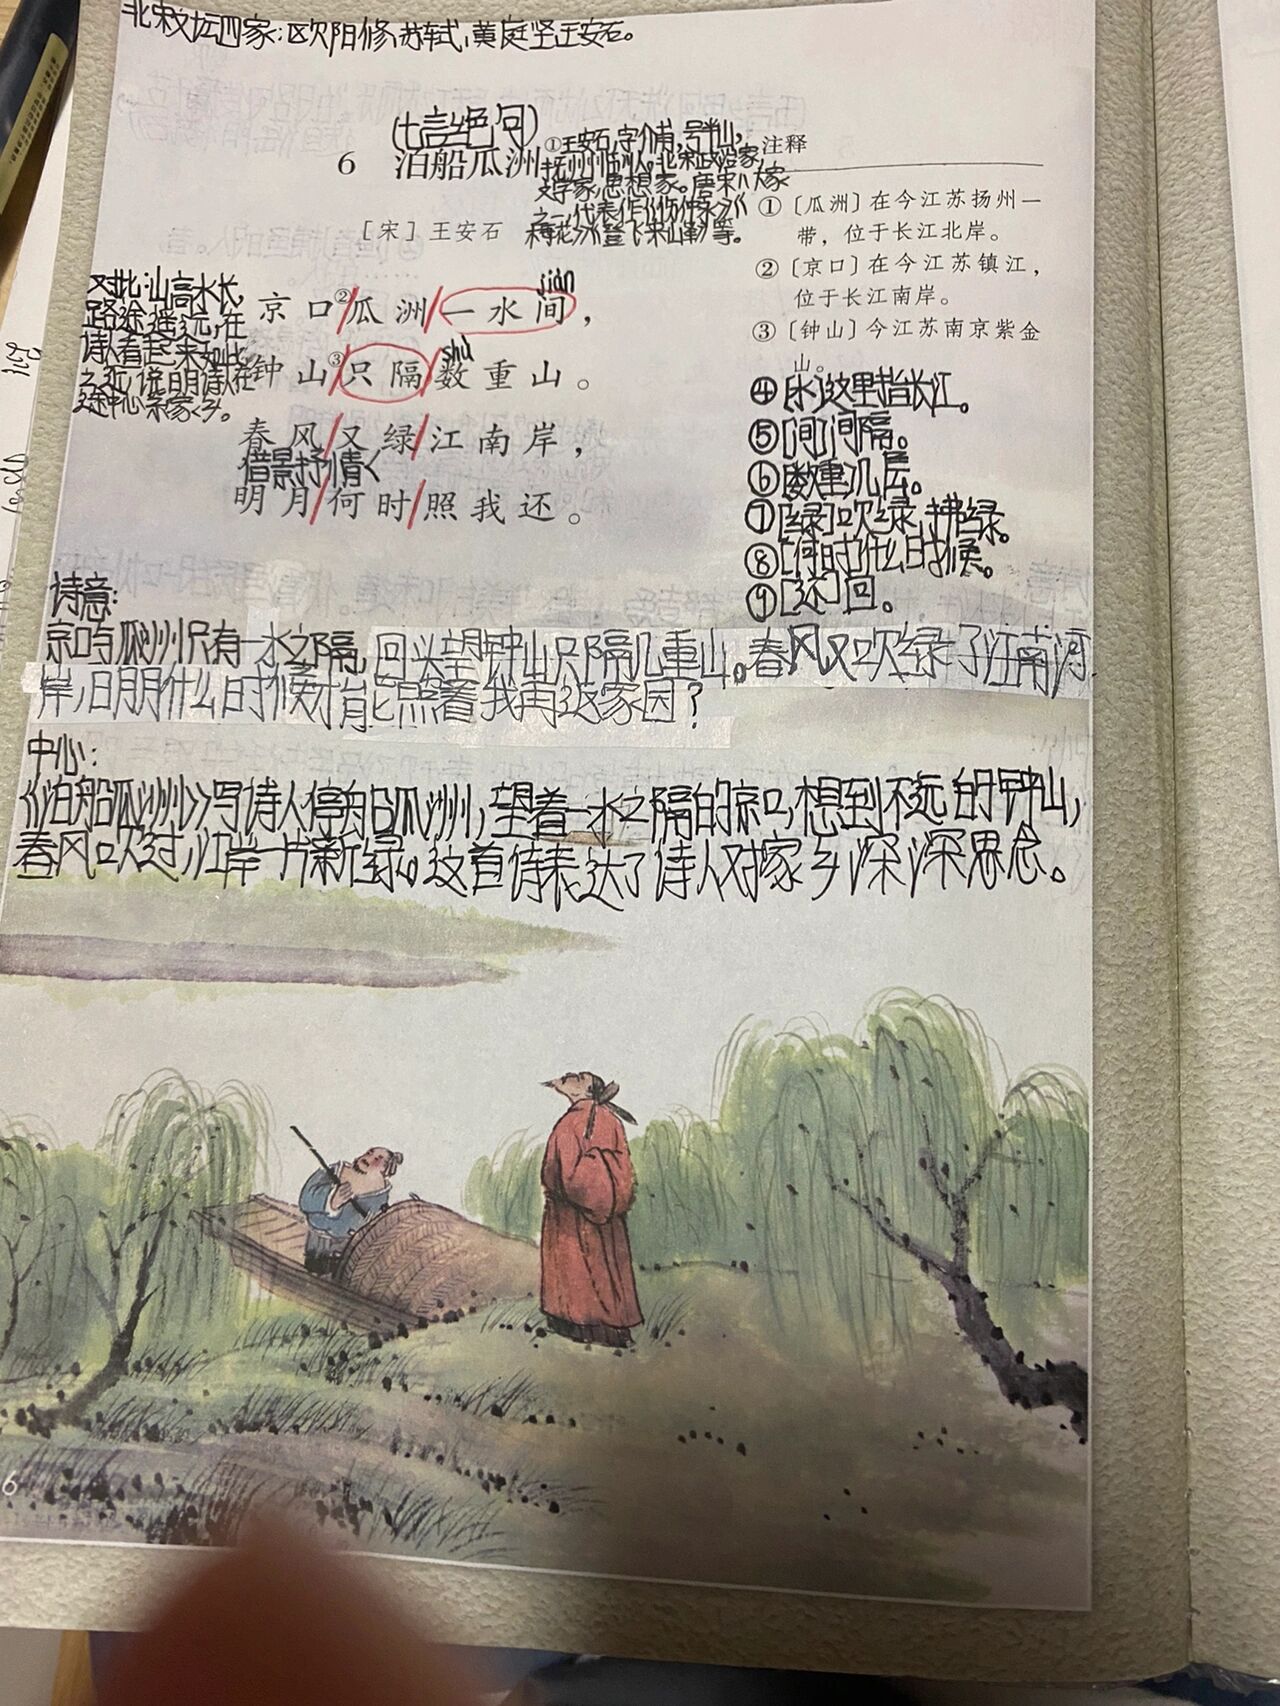 北宋文坛四家：欧阳修、苏轼、黄庭坚、王安石。
（七言绝句）
6 泊船瓜洲
［宋］王安石
①王安石，字介甫，号半山，
抚州临川人。北宋政治家，
文学家，思想家。唐宋八大家
之一，代表作《伤仲永》《
梅花》《登飞来山峰》等。
注释
①〔瓜洲〕在今江苏扬州一
带，位于长江北岸。
②〔京口〕在今江苏镇江，
位于长江南岸。
③〔钟山〕今江苏南京紫金
山。
④[水]这里指长江。
⑤[间]间隔。
⑥[数重]几层。
⑦[绿]吹绿，拂绿。
⑧[何时]什么时候。
⑨[还]回。
对比：山高水长，
路途遥远，在
诗人看起来如此
之近，说明诗人在
途中心系家乡。
jiàn
京口②瓜洲一水间，
shù
钟山③只隔数重山。
春风又绿江南岸，
借景抒情
明月何时照我还。
诗意：
京口与瓜洲只有一水之隔，回头望钟山只隔几重山。春风又吹绿了江南河
岸，明月什么时候才能照着我再返家园？
中心：
《泊船瓜洲》写诗人停船瓜洲，望着一水之隔的京口，想到不远的钟山，
春风吹过，江岸一片新绿。这首诗表达了诗人对家乡深深思念。
6